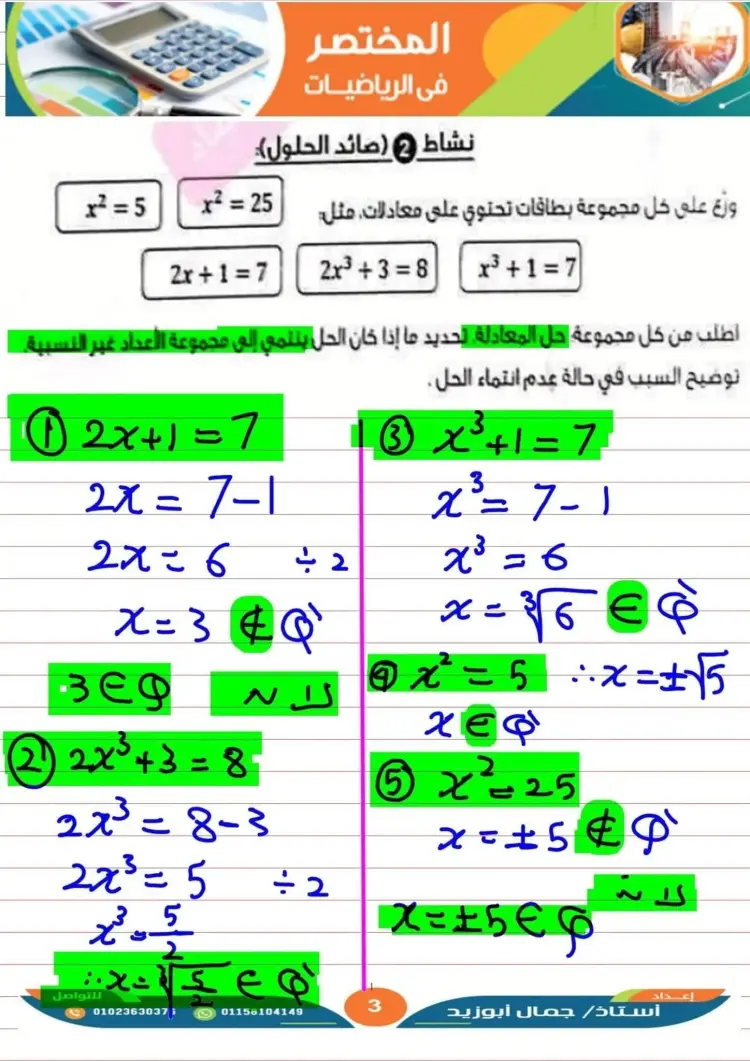 المختصر
فى الرياضيات
نشاط 2 (صائد الحلول):
وزع على كل مجموعة بطاقات تحتوي على معادلات، مثل:
x² = 25
x² = 5
x³ + 1 = 7
2x³ + 3 = 8
2x + 1 = 7
اطلب من كل مجموعة: حل المعادلة، تحديد ما إذا كان الحل ينتمي إلى مجموعة الأعداد غير النسبية.
توضيح السبب في حالة عدم انتماء الحل.
① 2x+1 = 7
2x = 7-1
2x = 6 ÷2
x = 3 ∉ Q`
3 ∈ Q
② 2x³+3 = 8
2x³ = 8-3
2x³ = 5 ÷2
x³ = 5/2
∴x = ∛(5/2) ∈ Q`
③ x³+1 = 7
x³ = 7-1
x³ = 6
x = ∛6 ∈ Q`
④ x² = 5 ∴x = ±√5
x ∈ Q`
⑤ x² = 25
x = ±5 ∉ Q`
x = ±5 ∈ Q
إعداد
أستاذ/ جمال أبوزيد
3
للتواصل
01158104149